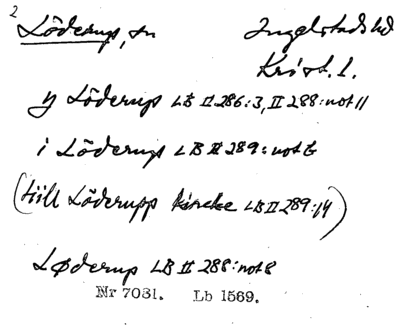 2
Löderup, sn Ingelstads hd
Krist. l.
y Löderup LB II 286:3, II 288:not 11
i Löderup LB II 289:not 6
(tiill Löderupp kircke LB II 289:14)
Løderup LB II 288:not 8
Nr 7031. Lb 1569.